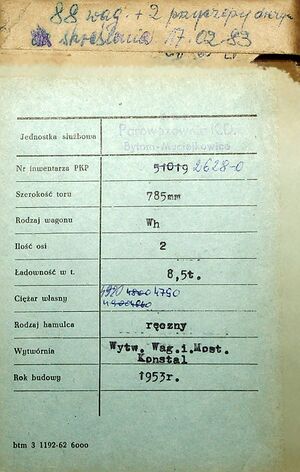 88 wag. + 2 przyczepy
skreślenia 17.02.83
Jednostka służbowa Parowozownia K.D.
Bytom-Maciejkowice
Nr inwentarza PKP 51019 2628-0
Szerokość toru 785mm
Rodzaj wagonu Wh
Ilość osi 2
Ładowność w t. 8,5t.
Ciężar własny 4750
Rodzaj hamulca ręczny
Wytwórnia Wytw. Wag.i.Most.
Konstal
Rok budowy 1953r.
btm 3 1192-62 6000